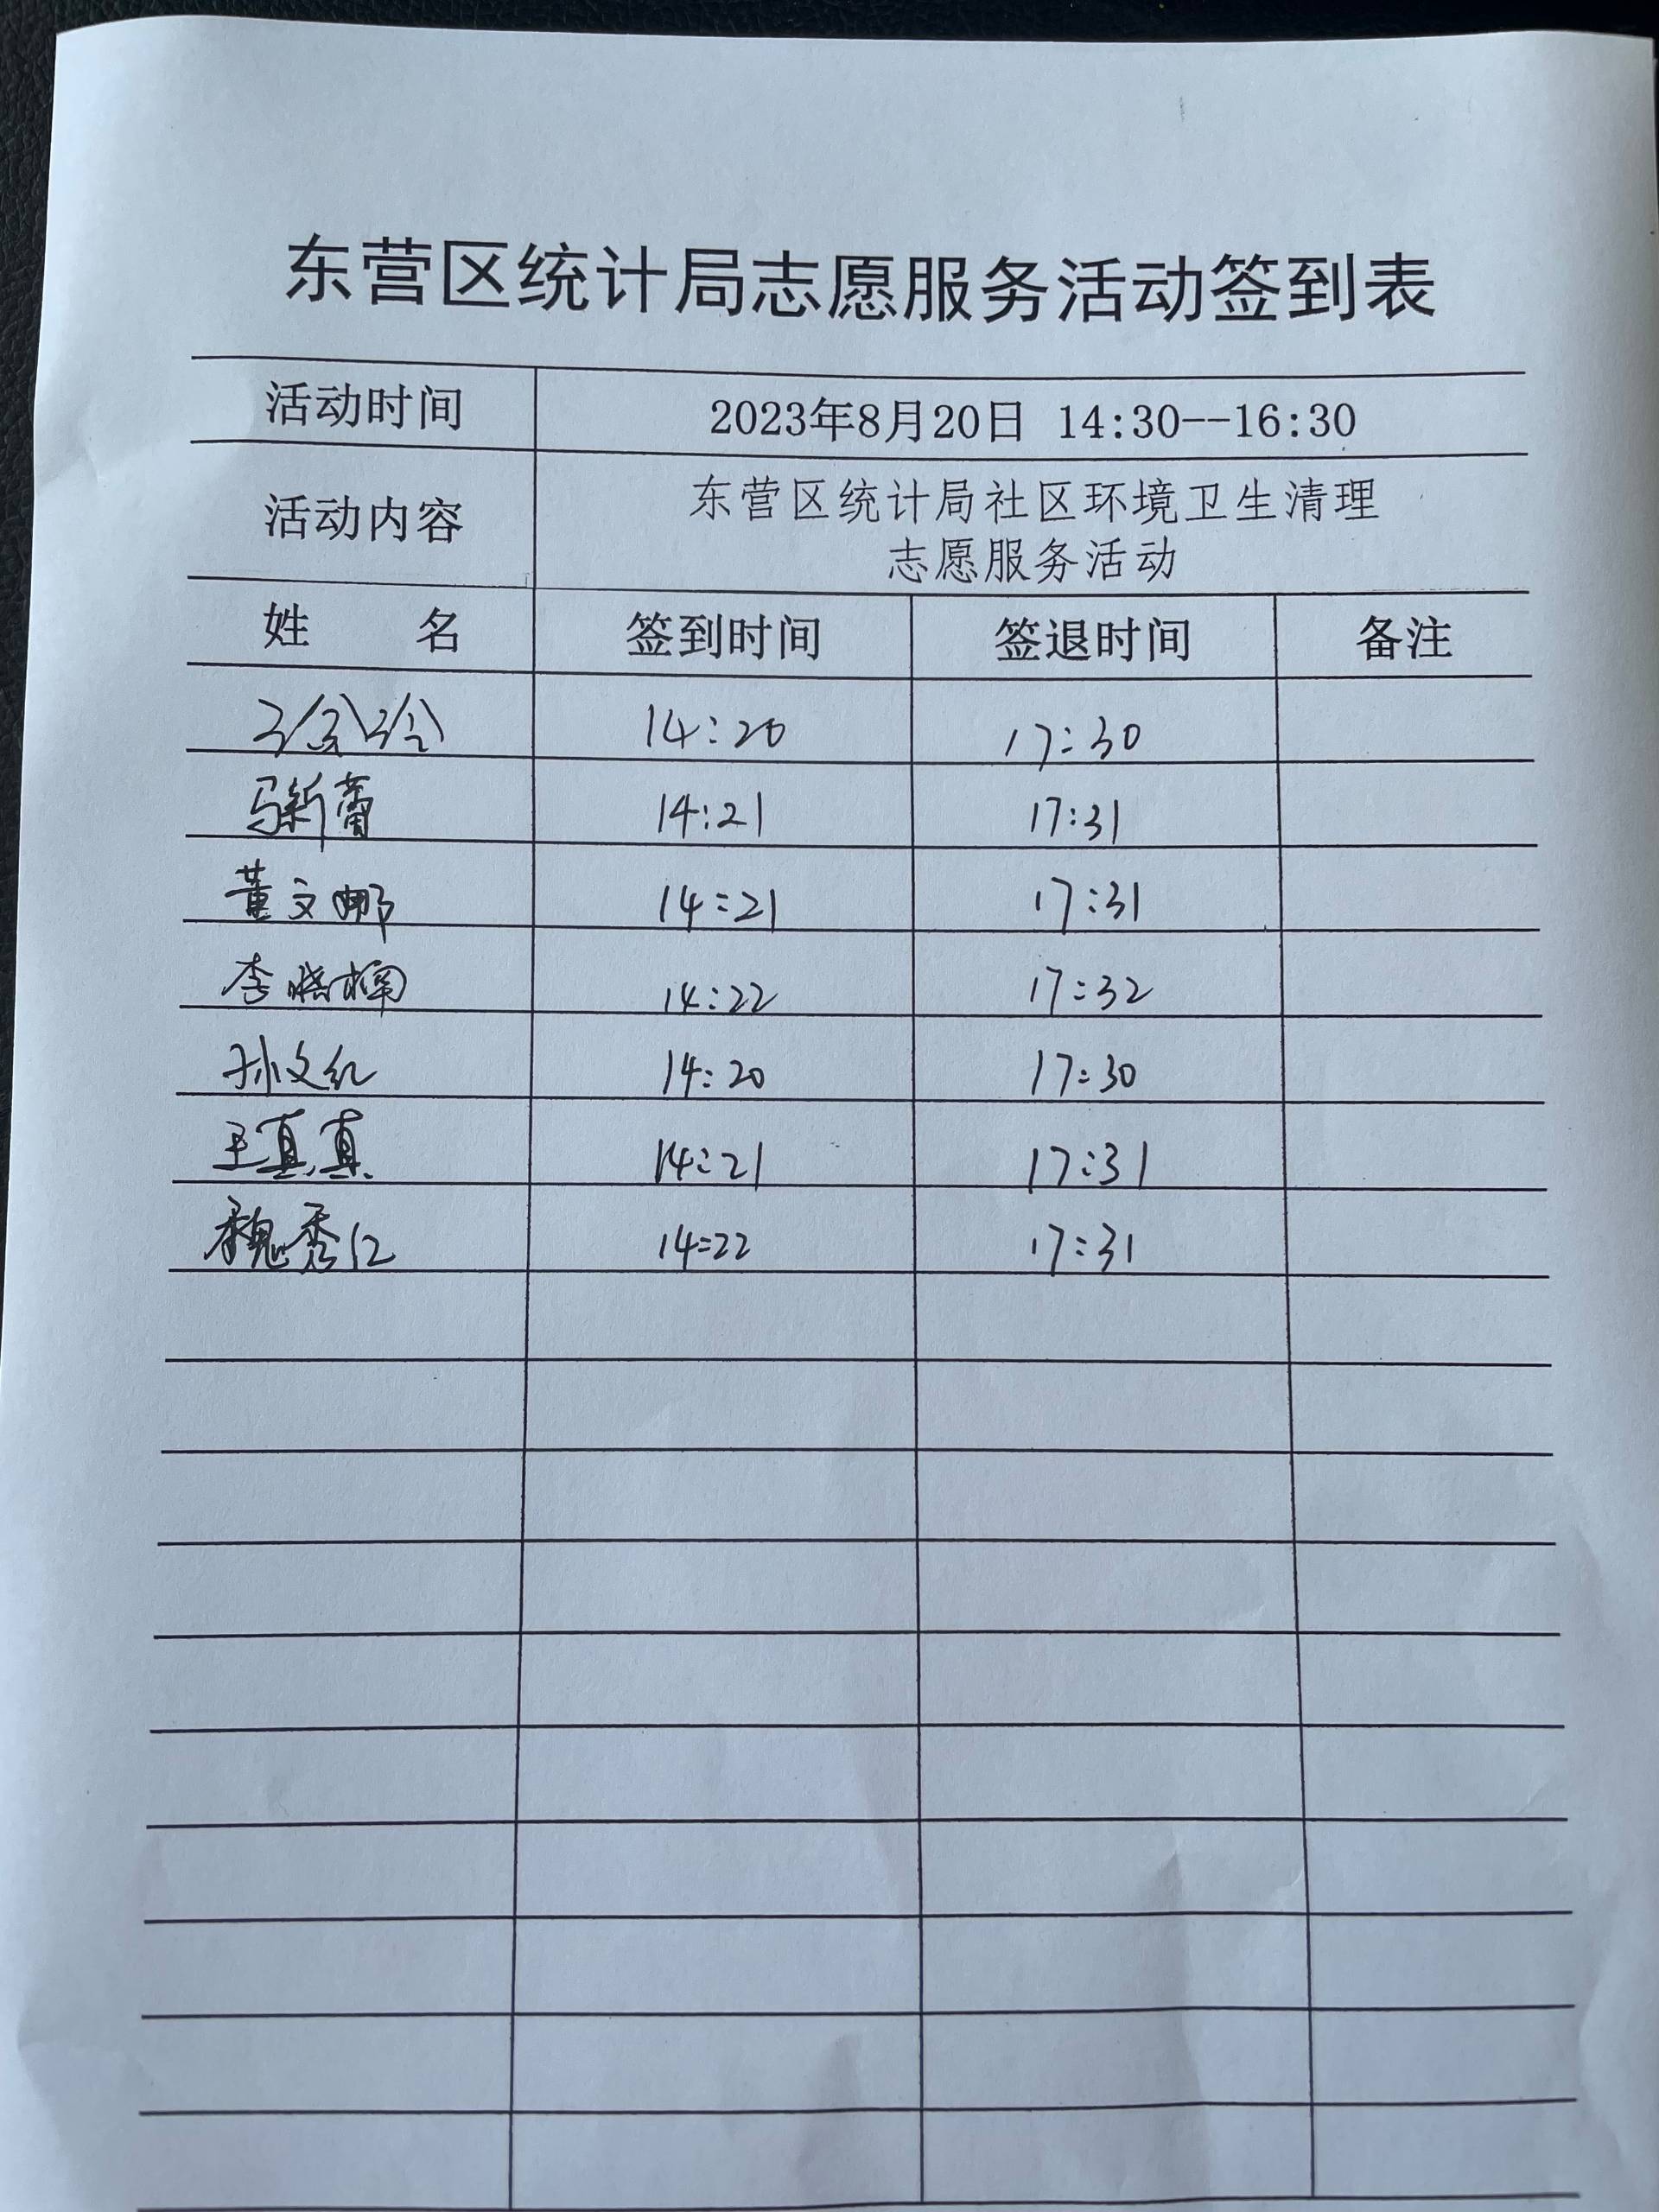 东营区统计局志愿服务活动签到表
活动时间 2023年8月20日 14:30--16:30
活动内容 东营区统计局社区环境卫生清理
志愿服务活动
姓 名 签到时间 签退时间 备注
14:20 17:30
马新蕾 14:21 17:31
董文娜 14:21 17:31
李晓楠 14:22 17:32
孙文红 14:20 17:30
王真真 14:21 17:31
魏秀江 14:22 17:31